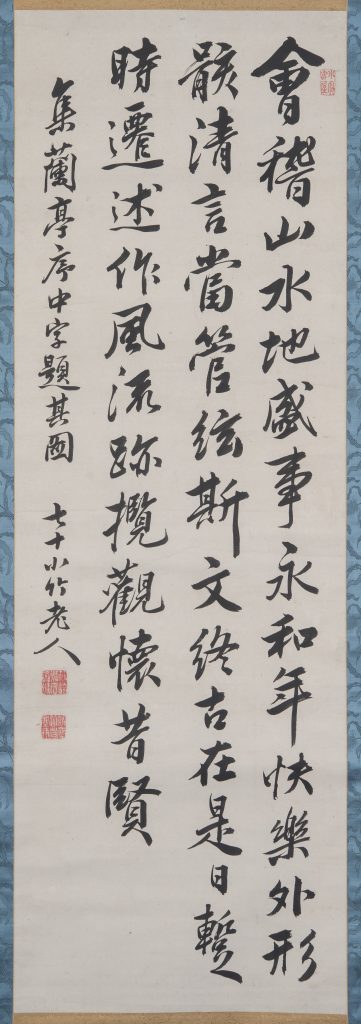 會稽山水地盛事永和年快樂外形
骸清言當管絃斯文終古在是日蹔
時遷述作風流跡攬觀懷昔賢
集蘭亭序中字題其圖 七十小竹老人